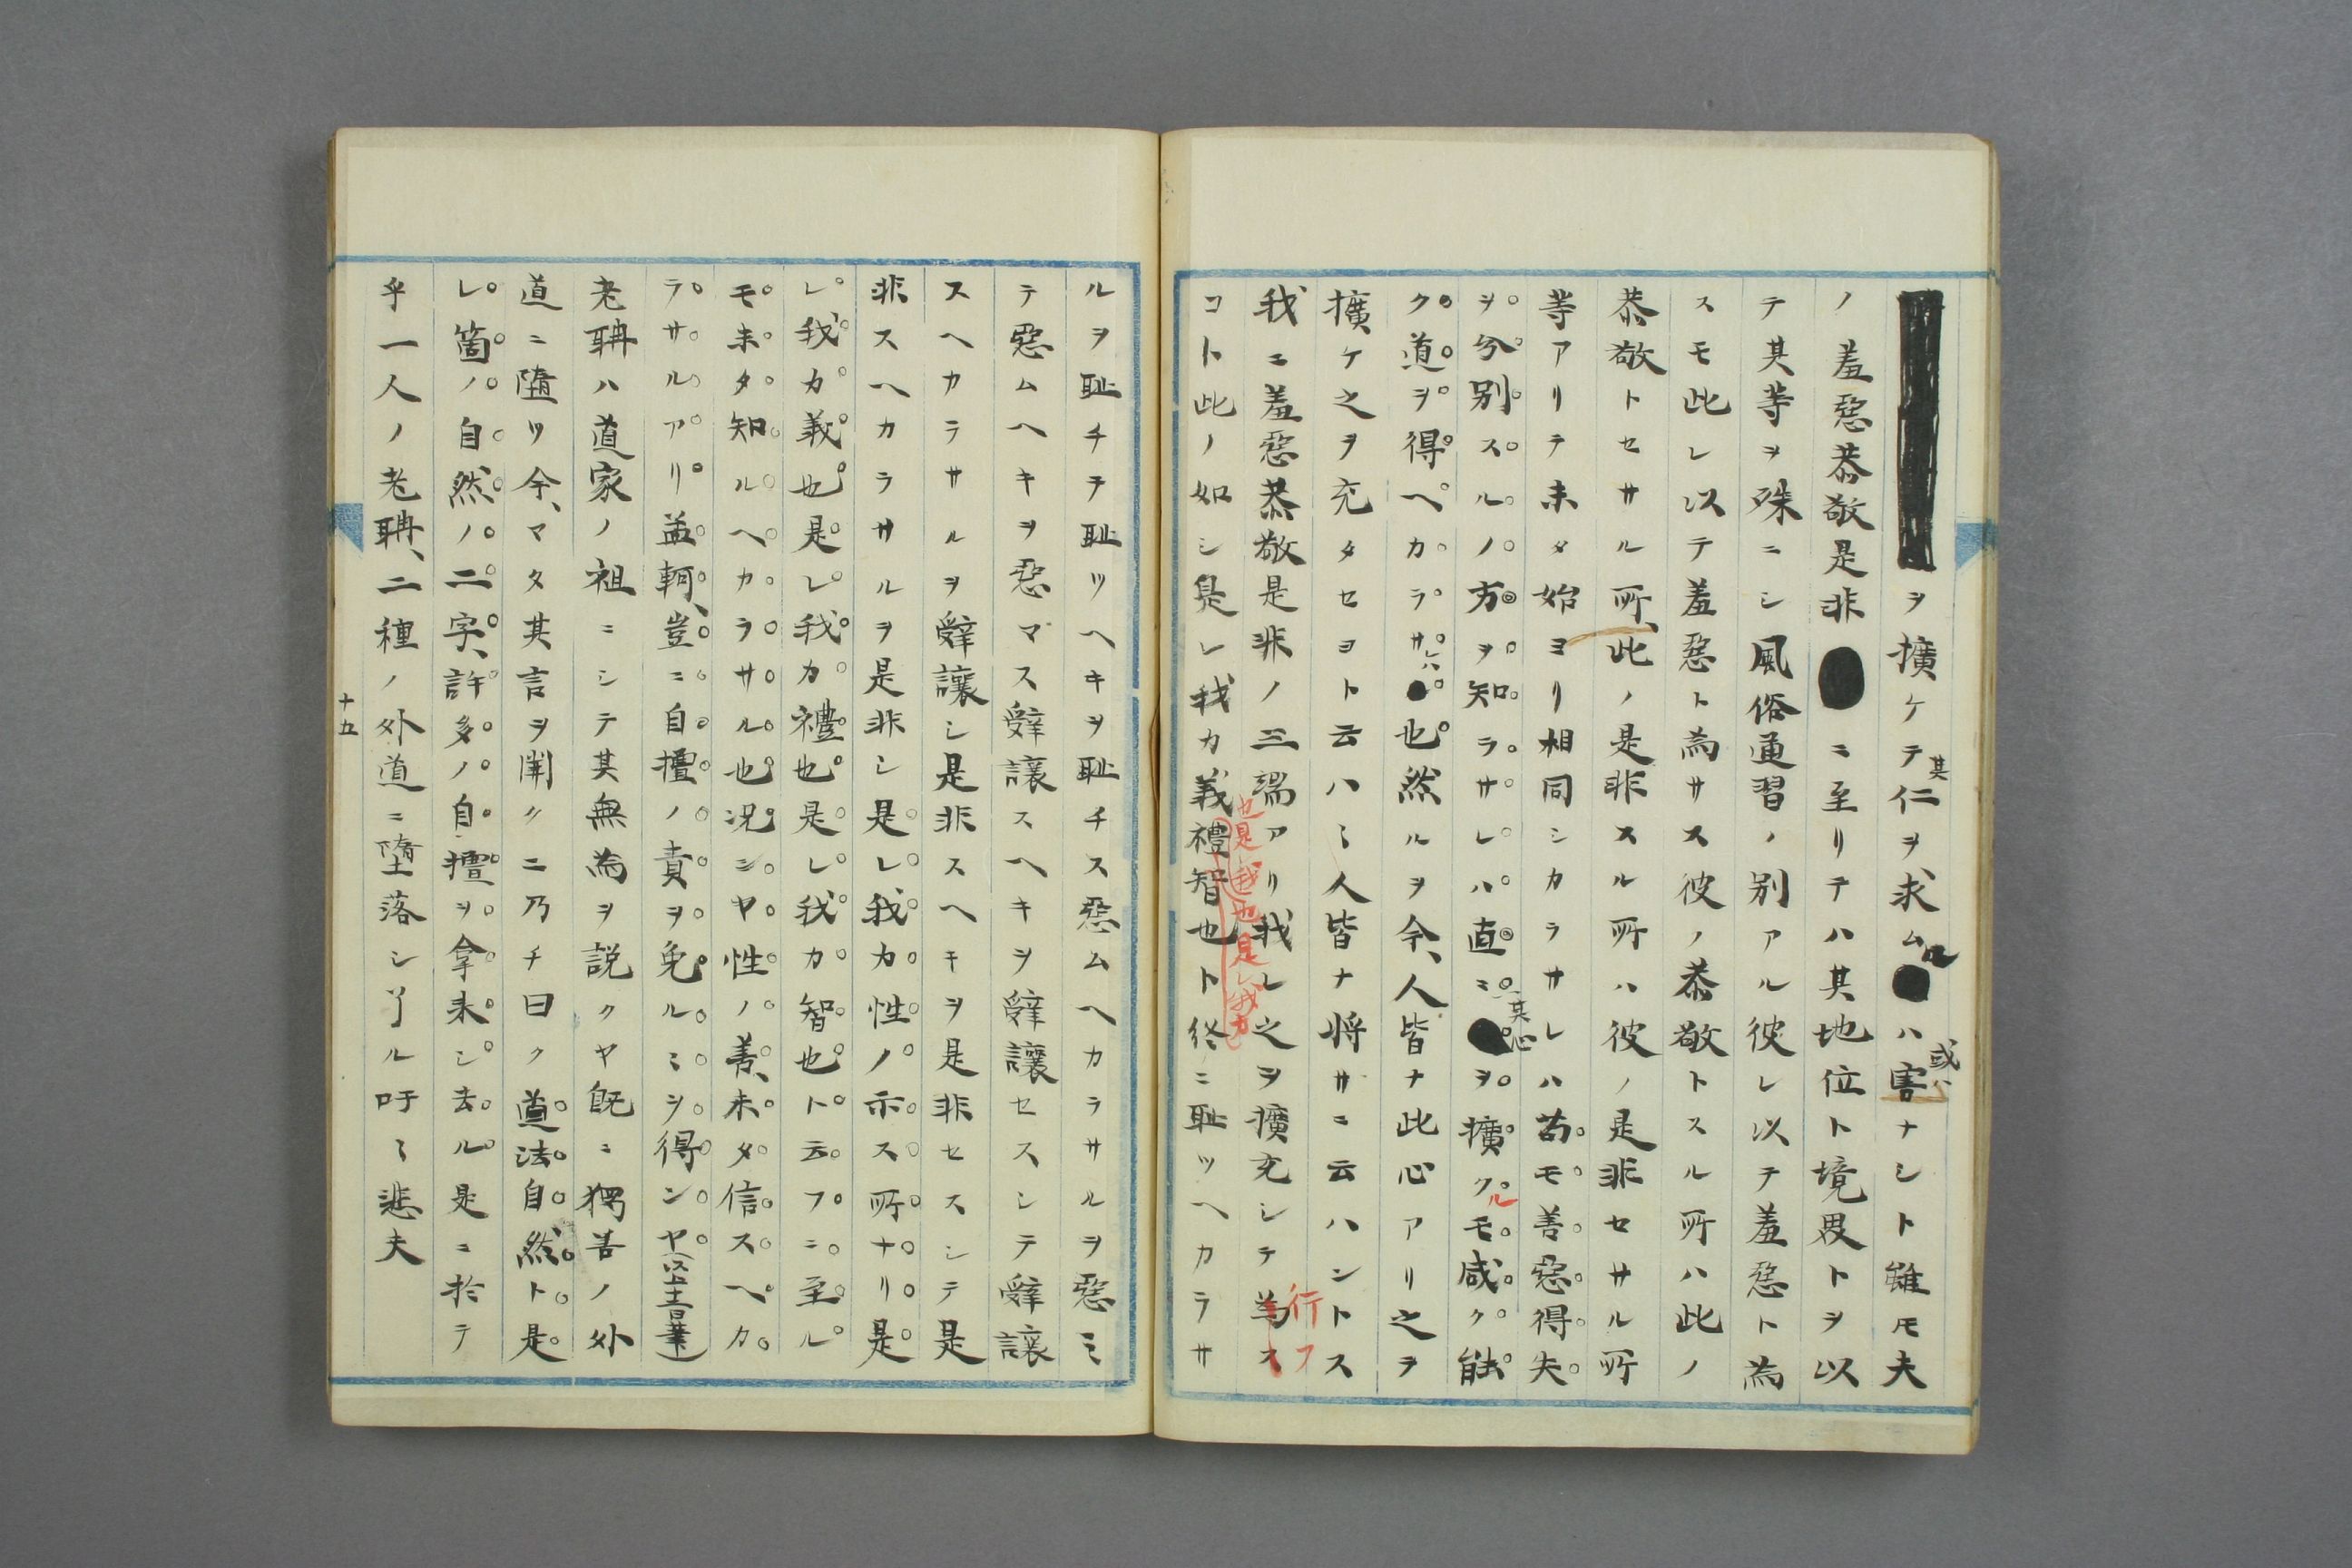 ヲ擴ケテ其仁ヲ求ムルハ或ハ害ナシト雖モ夫
ノ羞惡恭敬是非ニ至リテハ其地位ト境界トヲ以
テ其等ヲ殊ニシ風俗通習ノ別アル彼レ以テ羞惡ト為
スモ此レ以テ羞惡ト為サス彼ノ恭敬トスル所ハ此ノ
恭敬トセサル所、此ノ是非スル所ハ彼ノ是非セサル所
等アリテ未タ始ヨリ相同シカラサレハ苟モ善惡得失
ヲ分別スルノ方ヲ知ラサレハ直ニ其心ヲ擴クルモ咸ク能
ク道ヲ得ヘカラサレハ也然ルヲ今、人皆ナ此心アリ之ヲ
擴ケ之ヲ充タセヨト云ハヽ人皆ナ将サニ云ハントス
我ニ羞惡恭敬是非ノ三端アリ我レ之ヲ擴充シテ行フ
コト此ノ如シ是レ我カ義也是レ我カ禮也是レ我カ智也ト終ニ恥ツヘカラサ
ルヲ恥チテ恥ツヘキヲ恥チス惡ムヘカラサルヲ惡ミ
テ惡ムヘキヲ惡マス辭讓スヘキヲ辭讓セスシテ辭讓
スヘカラサルヲ辭讓シ是非スヘキヲ是非セスシテ是
非スヘカラサルヲ是非シ是レ我カ性ノ示ス所ナリ是
レ我カ義也是レ我カ禮也是レ我カ智也ト云フニ至ル
モ未タ知ルヘカラサル也況ンヤ性ノ善、未タ信スヘカ
ラサルアリ孟軻、豈ニ自擅ノ責ヲ免ルヽヲ得ンヤ
老聃ハ道家ノ祖ニシテ其無為ヲ説クヤ既ニ獨善ノ外
道ニ墮ツ今、マタ其言ヲ開クニ乃チ曰ク道法自然ト是
レ箇ノ自然ノ二字、許多ノ自擅ヲ拿来シ去ル是ニ於テ
乎一人ノ老聃、二種ノ外道ニ墮落シ了ル吁々悲夫
十五